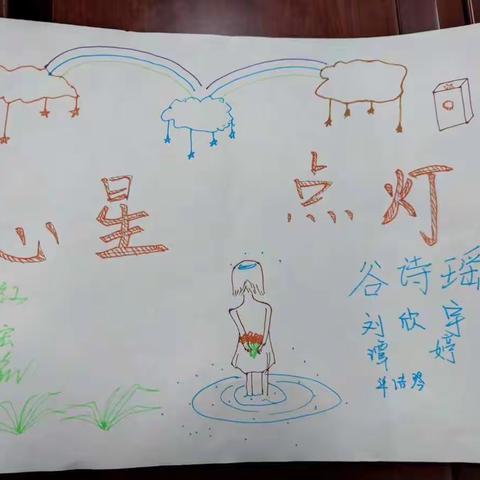 心星 点灯
谷诗瑶
刘欣宇
谭婷
红